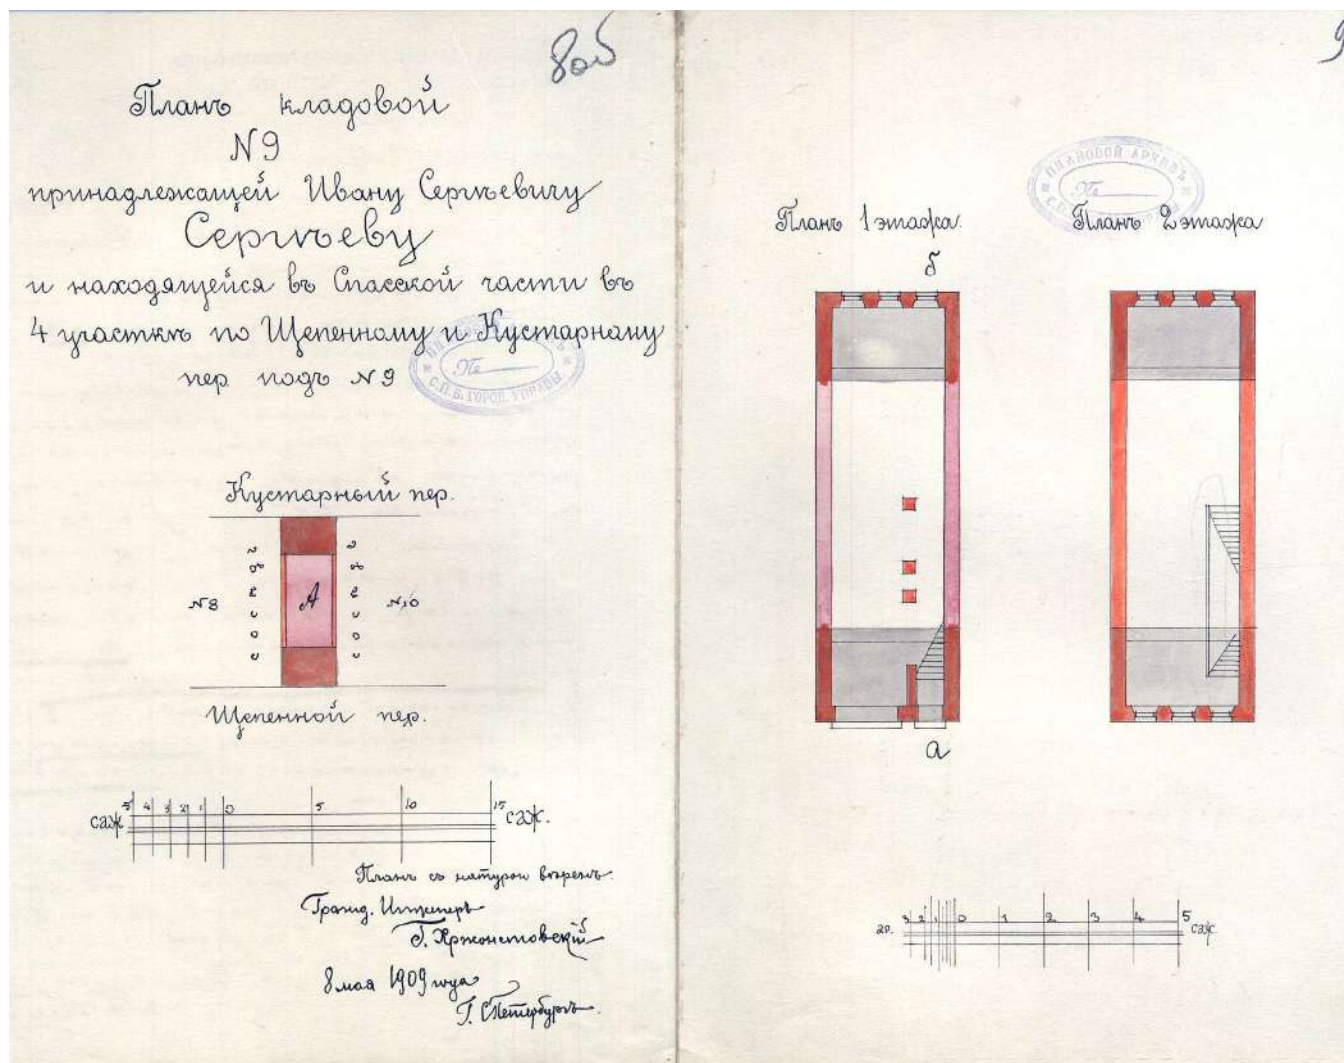 8об
Планъ кладовой
N9
принадлежащей Ивану Сергѣевичу
Сергѣеву
и находящейся въ Спасской части въ
4 участкѣ по Щепенному и Кустарному
пер. подъ N9
ПЛАНОВОЙ АРХИВЪ
№
С.П.Б. ГОРОД. УПРАВЫ
Кустарный пер.
N8
А
N10
Щепенной пер.
саж 5 4 3 2 1 0 5 10 15 саж.
Планъ съ натурою вѣренъ.
Гражд. Инженеръ
8 мая 1909 года
Г. СПетербургъ.
9
ПЛАНОВОЙ АРХИВЪ
№
С.П.Б. ГОРОД. УПРАВЫ
Планъ 1 этажа.
Планъ 2 этажа
б
а
ар. 3 2 1 0 1 2 3 4 5 саж.